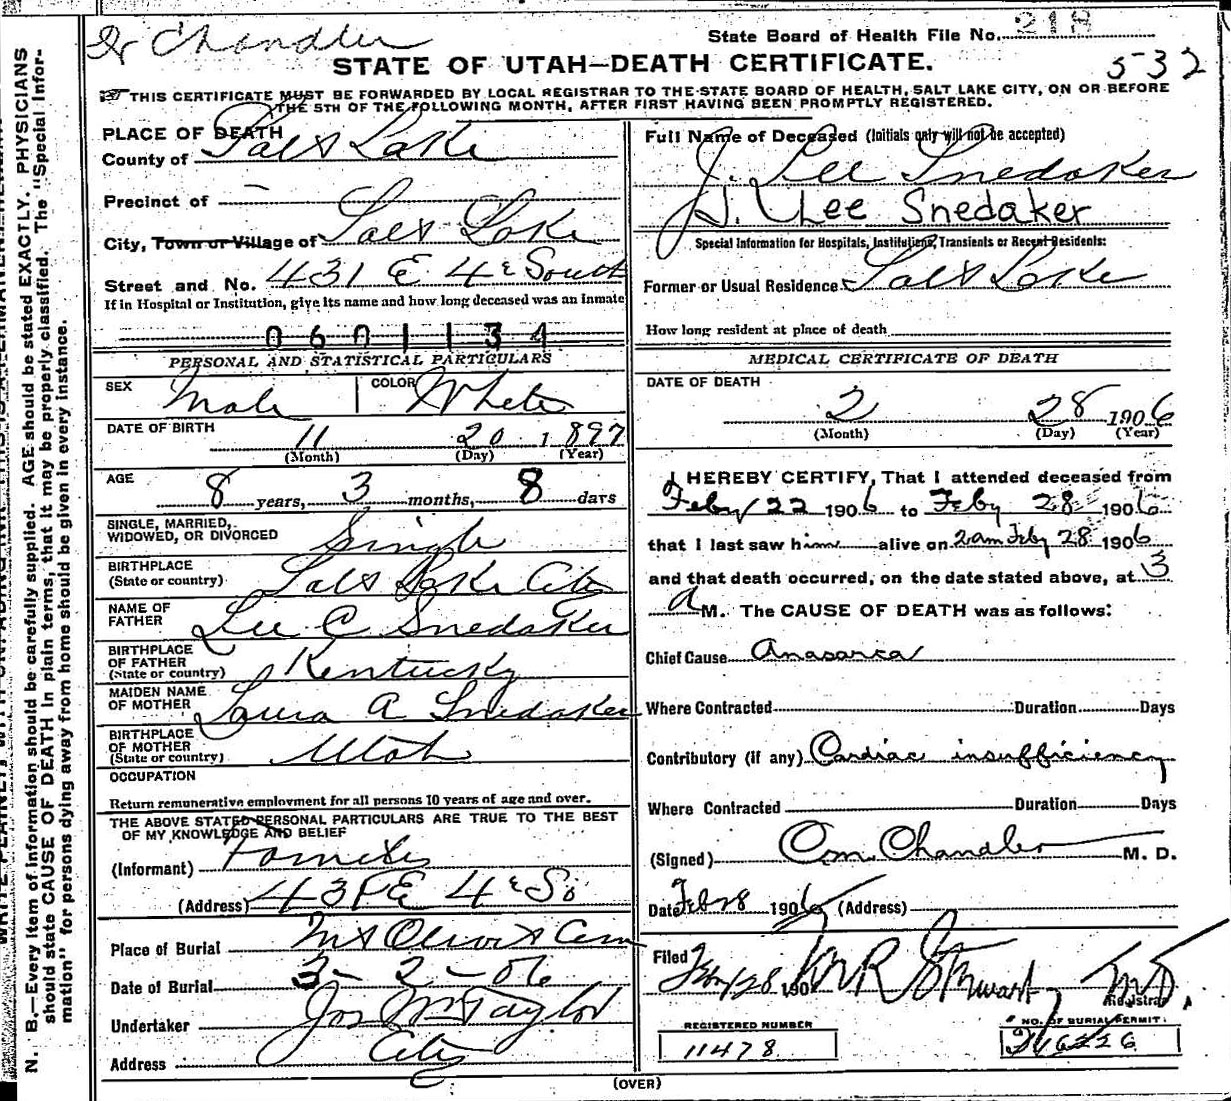 Dr Chandler
State Board of Health File No. 218
532
STATE OF UTAH—DEATH CERTIFICATE.
THIS CERTIFICATE MUST BE FORWARDED BY LOCAL REGISTRAR TO THE STATE BOARD OF HEALTH, SALT LAKE CITY, ON OR BEFORE
THE 5TH OF THE FOLLOWING MONTH, AFTER FIRST HAVING BEEN PROMPTLY REGISTERED.
N. B.—Every item of information should be carefully supplied. AGE should be stated EXACTLY. PHYSICIANS
should state CAUSE OF DEATH in plain terms, that it may be properly classified. The "Special Infor-
mation" for persons dying away from home should be given in every instance.
PLACE OF DEATH
County of Salt Lake
Precinct of —
City, Town or Village of Salt Lake
Street and No. 431 E 4th South
If in Hospital or Institution, give its name and how long deceased was an inmate
0601134
PERSONAL AND STATISTICAL PARTICULARS
SEX Male COLOR White
DATE OF BIRTH 11 20 1897
(Month) (Day) (Year)
AGE 8 years, 3 months, 8 days
SINGLE, MARRIED,
WIDOWED, OR DIVORCED Single
BIRTHPLACE
(State or country) Salt Lake City
NAME OF
FATHER Lee C Snedaker
BIRTHPLACE
OF FATHER
(State or country) Kentucky
MAIDEN NAME
OF MOTHER Laura A Snedaker
BIRTHPLACE
OF MOTHER
(State or country) Utah
OCCUPATION
Return remunerative employment for all persons 10 years of age and over.
THE ABOVE STATED PERSONAL PARTICULARS ARE TRUE TO THE BEST
OF MY KNOWLEDGE AND BELIEF
(Informant)
(Address) 431 E 4th So
Place of Burial Mt Olivet Cem
Date of Burial 3-2-06
Undertaker Jos Wm Taylor
Address City
(OVER)
Full Name of Deceased (Initials only will not be accepted)
J. Lee Snedaker
J. Lee Snedaker
Special Information for Hospitals, Institutions, Transients or Recent Residents:
Former or Usual Residence Salt Lake
How long resident at place of death
MEDICAL CERTIFICATE OF DEATH
DATE OF DEATH
2 28 1906
(Month) (Day) (Year)
I HEREBY CERTIFY, That I attended deceased from
Feby 22 1906 to Feby 28 1906
that I last saw him alive on 2am Feby 28 1906
and that death occurred, on the date stated above, at 3
a M. The CAUSE OF DEATH was as follows:
Chief Cause Anasarca
Where Contracted Duration Days
Contributory (if any) Cardiac insufficiency
Where Contracted Duration Days
(Signed) Chandler M. D.
Date Feb 28 1906 (Address)
Filed Feb 28 190 Stewart MD.
Registrar
REGISTERED NUMBER
11478
NO. OF BURIAL PERMIT: